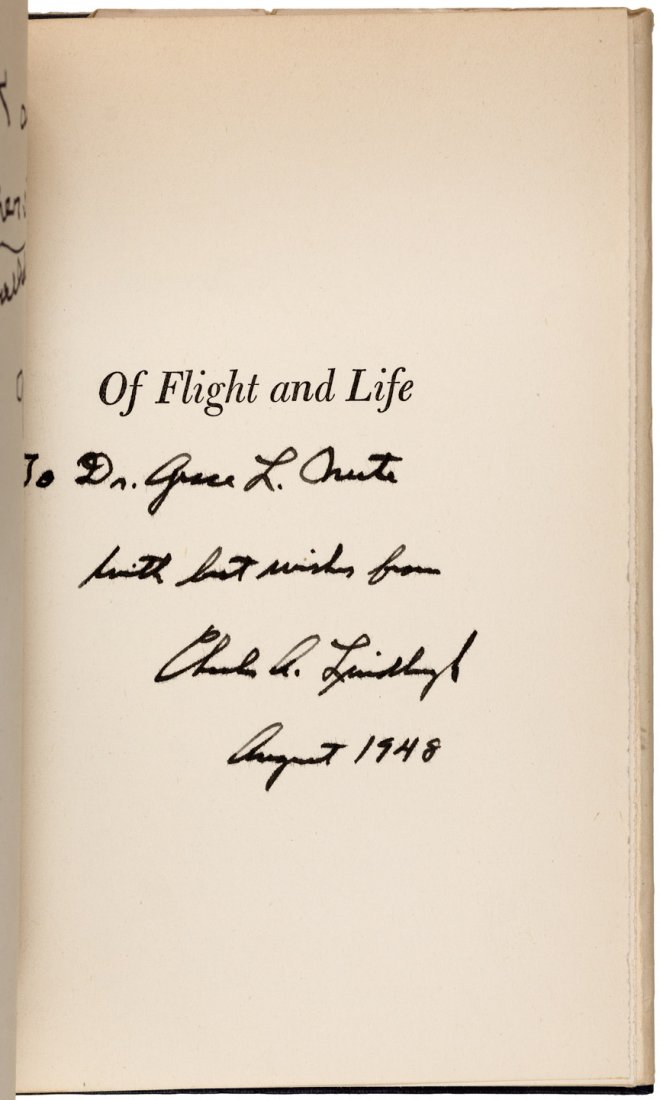 Of Flight and Life
To Dr. Grace L. Nute
with best wishes from
Charles A. Lindbergh
August 1948